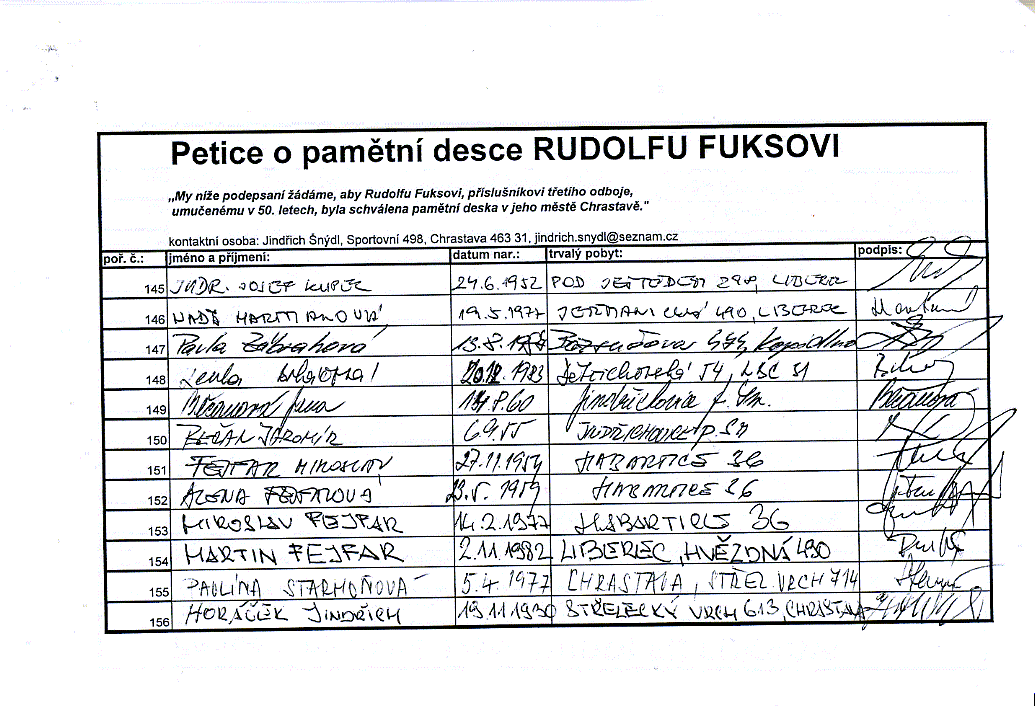 Petice o pamětní desce RUDOLFU FUKSOVI
„My níže podepsaní žádáme, aby Rudolfu Fuksovi, příslušníkovi třetího odboje,
umučenému v 50. letech, byla schválena pamětní deska v jeho městě Chrastavě."
kontaktní osoba: Jindřich Šnýdl, Sportovní 498, Chrastava 463 31, jindrich.snydl@seznam.cz
poř. č.: jméno a příjmení: datum nar.: trvalý pobyt: podpis:
145 JUDR. JOSEF KUPEC 24.6.1952 POD JEŠTĚDEM LIBEREC
146 HARTMANOVÁ 19.5.1977 490, LIBEREC
147 Pavla Zábrahová Kopidlno
148 Lenka 20.12.1983 54, LBC 31
149 Jindřichovice p. Sm.
150 BEČAN JAROMÍR 6.9.55 JINDŘICHOVICE P. SM
151 FEJFAR MIROSLAV 27.11.1954 HABARTICE 36
152 ALENA FEJFAROVÁ 23.5.1959 HABARTICE 36
153 MIROSLAV FEJFAR 14.2.1977 HABARTICE 36
154 MARTIN FEJFAR 2.11.1982 LIBEREC, HVĚZDNÁ 490
155 PAULÍNA STARHOŇOVÁ 5.4.1977 CHRASTAVA, STŘEL. VRCH 714
156 HORÁČEK JINDŘICH 19.11.1930 STŘELECKÝ VRCH 613, CHRASTAVA